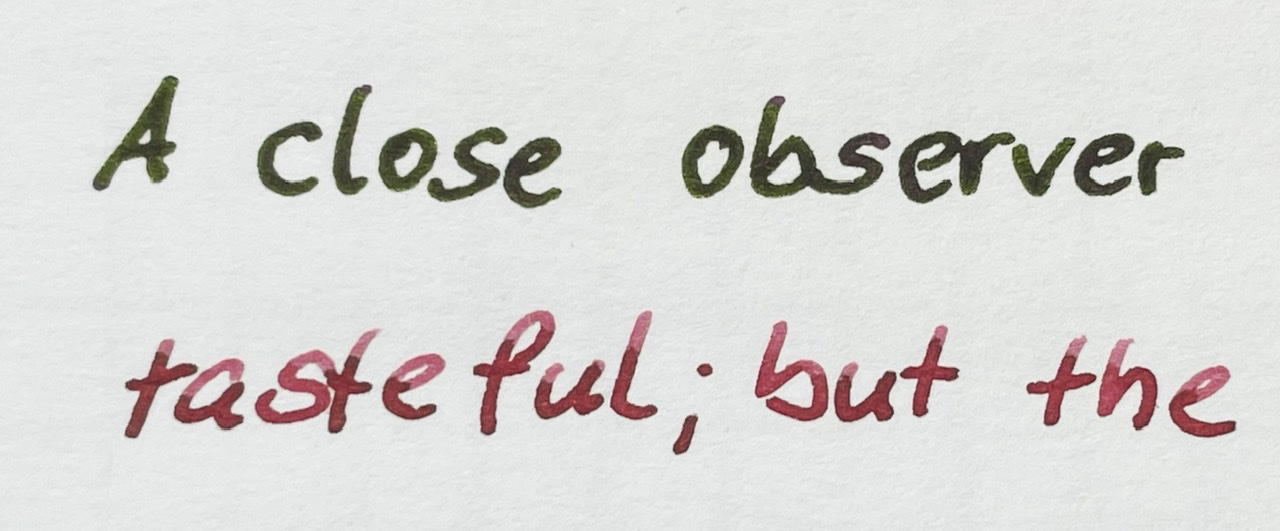 A close observer
tasteful; but the